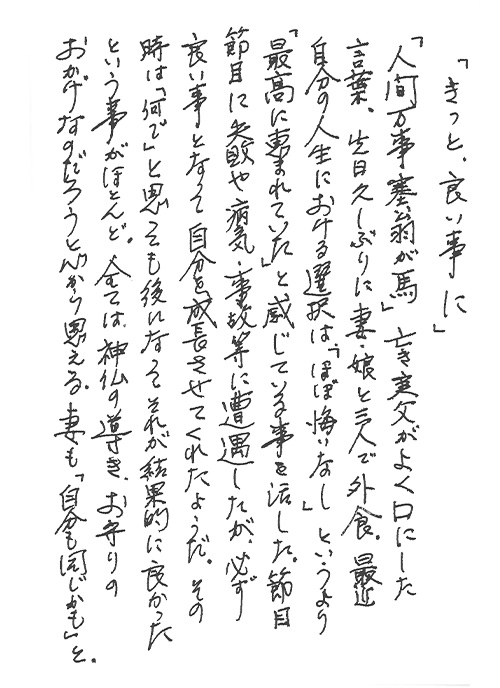 「きっと、良い事に」
「人間万事塞翁が馬」亡き実父がよく口にした
言葉。先日久しぶりに妻・娘と三人で外食。最近
自分の人生における選択は、「ほぼ悔いなし」というより
「最高に恵まれていた」と感じている事を話した。節目
節目に失敗や病気・事故等に遭遇したが、必ず
良い事となって自分を成長させてくれたようだ。その
時は「何で」と思っても後になってそれが結果的に良かった
という事がほとんど。全ては神仏の導き、お守りの
おかげなのだろうと心から思える。妻も「自分も同じかも」と。